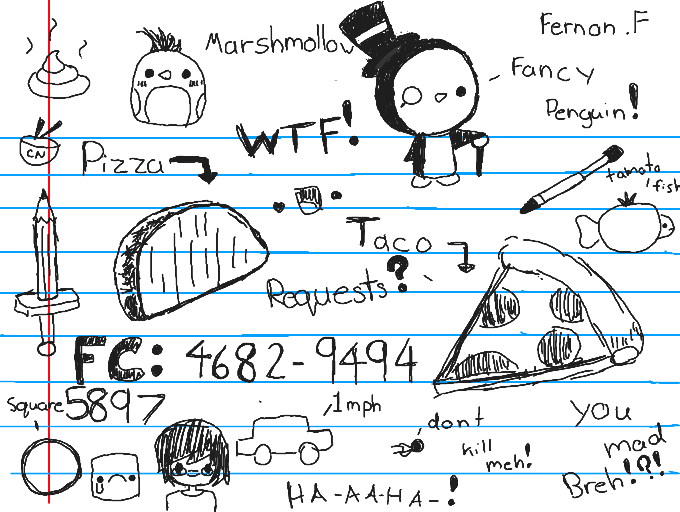 Marshmollow
Fernon.F
Fancy
Penguin!
WTF!
CN
Pizza
tamato
fish
Taco
Requests?
FC: 4682-9494
5897
square
1mph
dont
kill
meh!
you
mad
Breh!?!
HA-AA-HA-!